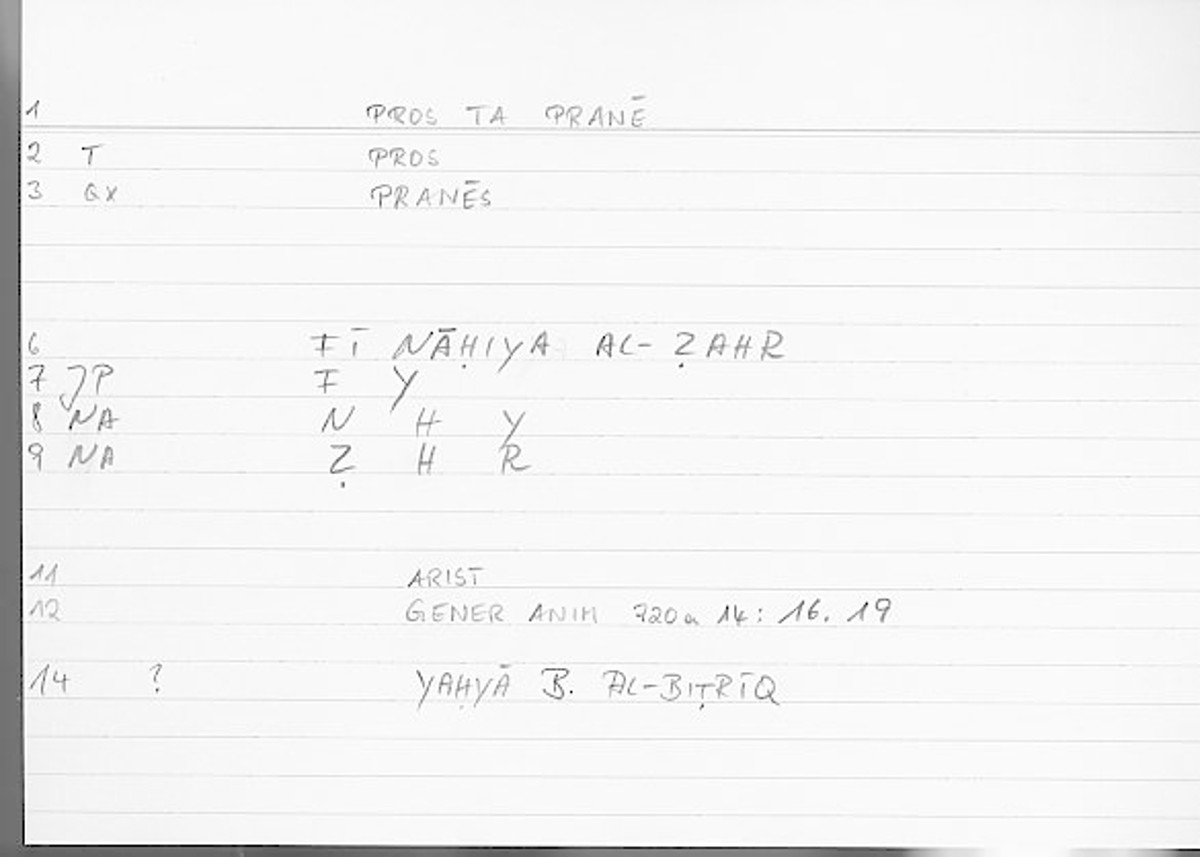 1 PROS TA PRANĒ
2 T PROS
3 GX PRANĒS
6 FĪ NĀḤIYA AL-ẒAHR
7 JP F Y
8 NA N H Y
9 NA Ẓ H R
11 ARIST
12 GENER ANIM 720a 14: 16.19
14 ? YAḤYĀ B. AL-BIṬRĪQ